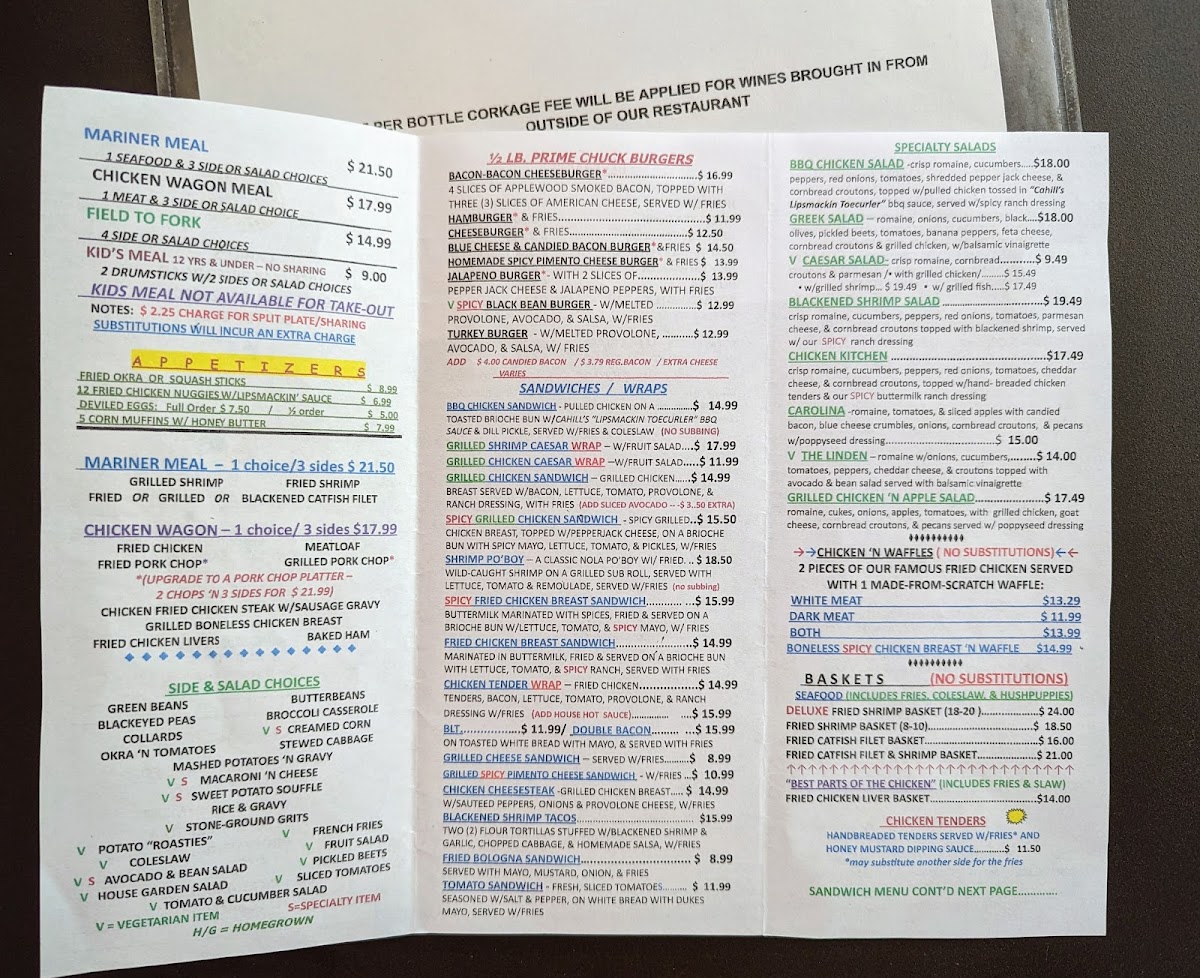 PER BOTTLE CORKAGE FEE WILL BE APPLIED FOR WINES BROUGHT IN FROM
OUTSIDE OF OUR RESTAURANT
MARINER MEAL
1 SEAFOOD & 3 SIDE OR SALAD CHOICES $ 21.50
CHICKEN WAGON MEAL
1 MEAT & 3 SIDE OR SALAD CHOICE $ 17.99
FIELD TO FORK
4 SIDE OR SALAD CHOICES $ 14.99
KID'S MEAL 12 YRS & UNDER – NO SHARING
2 DRUMSTICKS W/2 SIDES OR SALAD CHOICES $ 9.00
KIDS MEAL NOT AVAILABLE FOR TAKE-OUT
NOTES: $ 2.25 CHARGE FOR SPLIT PLATE/SHARING
SUBSTITUTIONS WILL INCUR AN EXTRA CHARGE
A P P E T I Z E R S
FRIED OKRA OR SQUASH STICKS $ 8.99
12 FRIED CHICKEN NUGGIES W/LIPSMACKIN' SAUCE $ 6.99
DEVILED EGGS: Full Order $ 7.50 / ½ order $ 5.00
5 CORN MUFFINS W/ HONEY BUTTER $ 7.99
MARINER MEAL – 1 choice/3 sides $ 21.50
GRILLED SHRIMP FRIED SHRIMP
FRIED OR GRILLED OR BLACKENED CATFISH FILET
CHICKEN WAGON – 1 choice/ 3 sides $17.99
FRIED CHICKEN MEATLOAF
FRIED PORK CHOP* GRILLED PORK CHOP*
*(UPGRADE TO A PORK CHOP PLATTER –
2 CHOPS 'N 3 SIDES FOR $ 21.99)
CHICKEN FRIED CHICKEN STEAK W/SAUSAGE GRAVY
GRILLED BONELESS CHICKEN BREAST
FRIED CHICKEN LIVERS BAKED HAM
SIDE & SALAD CHOICES
GREEN BEANS BUTTERBEANS
BLACKEYED PEAS BROCCOLI CASSEROLE
COLLARDS V S CREAMED CORN
OKRA 'N TOMATOES STEWED CABBAGE
MASHED POTATOES 'N GRAVY
V S MACARONI 'N CHEESE
V S SWEET POTATO SOUFFLE
RICE & GRAVY
V STONE-GROUND GRITS
V POTATO "ROASTIES" V FRENCH FRIES
V COLESLAW V FRUIT SALAD
V S AVOCADO & BEAN SALAD V PICKLED BEETS
V HOUSE GARDEN SALAD V SLICED TOMATOES
V TOMATO & CUCUMBER SALAD
V = VEGETARIAN ITEM S=SPECIALTY ITEM
H/G = HOMEGROWN
½ LB. PRIME CHUCK BURGERS
BACON-BACON CHEESEBURGER*..............................$ 16.99
4 SLICES OF APPLEWOOD SMOKED BACON, TOPPED WITH
THREE (3) SLICES OF AMERICAN CHEESE, SERVED W/ FRIES
HAMBURGER* & FRIES....................................$ 11.99
CHEESEBURGER* & FRIES.................................$ 12.50
BLUE CHEESE & CANDIED BACON BURGER*&FRIES $ 14.50
HOMEMADE SPICY PIMENTO CHEESE BURGER* & FRIES $ 13.99
JALAPENO BURGER*- WITH 2 SLICES OF....................$ 13.99
PEPPER JACK CHEESE & JALAPENO PEPPERS, WITH FRIES
V SPICY BLACK BEAN BURGER - W/MELTED .........$ 12.99
PROVOLONE, AVOCADO, & SALSA, W/FRIES
TURKEY BURGER - W/MELTED PROVOLONE, ..........$ 12.99
AVOCADO, & SALSA, W/ FRIES
ADD $ 4.00 CANDIED BACON / $ 3.79 REG.BACON / EXTRA CHEESE
VARIES
SANDWICHES / WRAPS
BBQ CHICKEN SANDWICH - PULLED CHICKEN ON A .............$ 14.99
TOASTED BRIOCHE BUN W/CAHILL'S "LIPSMACKIN TOECURLER" BBQ
SAUCE & DILL PICKLE, SERVED W/FRIES & COLESLAW (NO SUBBING)
GRILLED SHRIMP CAESAR WRAP – W/FRUIT SALAD....$ 17.99
GRILLED CHICKEN CAESAR WRAP –W/FRUIT SALAD.....$ 11.99
GRILLED CHICKEN SANDWICH – GRILLED CHICKEN.....$ 14.99
BREAST SERVED W/BACON, LETTUCE, TOMATO, PROVOLONE, &
RANCH DRESSING, WITH FRIES (ADD SLICED AVOCADO -- -$ 3..50 EXTRA)
SPICY GRILLED CHICKEN SANDWICH - SPICY GRILLED..$ 15.50
CHICKEN BREAST, TOPPED W/PEPPERJACK CHEESE, ON A BRIOCHE
BUN WITH SPICY MAYO, LETTUCE, TOMATO, & PICKLES, W/FRIES
SHRIMP PO'BOY – A CLASSIC NOLA PO'BOY W/ FRIED. .. $ 18.50
WILD-CAUGHT SHRIMP ON A GRILLED SUB ROLL, SERVED WITH
LETTUCE, TOMATO & REMOULADE, SERVED W/FRIES (no subbing)
SPICY FRIED CHICKEN BREAST SANDWICH......... ...$ 15.99
BUTTERMILK MARINATED WITH SPICES, FRIED & SERVED ON A
BRIOCHE BUN W/LETTUCE, TOMATO, & SPICY MAYO, W/ FRIES
FRIED CHICKEN BREAST SANDWICH.....................$ 14.99
MARINATED IN BUTTERMILK, FRIED & SERVED ON A BRIOCHE BUN
WITH LETTUCE, TOMATO, & SPICY RANCH, SERVED WITH FRIES
CHICKEN TENDER WRAP – FRIED CHICKEN.................$ 14.99
TENDERS, BACON, LETTUCE, TOMATO, PROVOLONE, & RANCH
DRESSING W/FRIES (ADD HOUSE HOT SAUCE)............... ....$ 15.99
BLT.................$ 11.99/ DOUBLE BACON......... ...$ 15.99
ON TOASTED WHITE BREAD WITH MAYO, & SERVED WITH FRIES
GRILLED CHEESE SANDWICH – SERVED W/FRIES.......$ 8.99
GRILLED SPICY PIMENTO CHEESE SANDWICH - W/FRIES ...$ 10.99
CHICKEN CHEESESTEAK -GRILLED CHICKEN BREAST..... $ 14.99
W/SAUTEED PEPPERS, ONIONS & PROVOLONE CHEESE, W/FRIES
BLACKENED SHRIMP TACOS...................................$15.99
TWO (2) FLOUR TORTILLAS STUFFED W/BLACKENED SHRIMP &
GARLIC, CHOPPED CABBAGE, & HOMEMADE SALSA, W/FRIES
FRIED BOLOGNA SANDWICH...........................$ 8.99
SERVED WITH MAYO, MUSTARD, ONION, & FRIES
TOMATO SANDWICH - FRESH, SLICED TOMATOES.......... $ 11.99
SEASONED W/SALT & PEPPER, ON WHITE BREAD WITH DUKES
MAYO, SERVED W/FRIES
SPECIALTY SALADS
BBQ CHICKEN SALAD -crisp romaine, cucumbers.....$18.00
peppers, red onions, tomatoes, shredded pepper jack cheese, &
cornbread croutons, topped w/pulled chicken tossed in "Cahill's
Lipsmackin Toecurler" bbq sauce, served w/spicy ranch dressing
GREEK SALAD – romaine, onions, cucumbers, black....$18.00
olives, pickled beets, tomatoes, banana peppers, feta cheese,
cornbread croutons & grilled chicken, w/balsamic vinaigrette
V CAESAR SALAD- crisp romaine, cornbread.............$ 9.49
croutons & parmesan /• with grilled chicken/........$ 15.49
• w/grilled shrimp... $ 19.49 • w/ grilled fish.....$ 17.49
BLACKENED SHRIMP SALAD ..........................$ 19.49
crisp romaine, cucumbers, peppers, red onions, tomatoes, parmesan
cheese, & cornbread croutons topped with blackened shrimp, served
w/ our SPICY ranch dressing
CHICKEN KITCHEN .......................................$17.49
crisp romaine, cucumbers, peppers, red onions, tomatoes, cheddar
cheese, & cornbread croutons, topped w/hand- breaded chicken
tenders & our SPICY buttermilk ranch dressing
CAROLINA -romaine, tomatoes, & sliced apples with candied
bacon, blue cheese crumbles, onions, cornbread croutons, & pecans
w/poppyseed dressing............................$ 15.00
V THE LINDEN – romaine w/onions, cucumbers,.......$ 14.00
tomatoes, peppers, cheddar cheese, & croutons topped with
avocado & bean salad served with balsamic vinaigrette
GRILLED CHICKEN 'N APPLE SALAD.................$ 17.49
romaine, cukes, onions, apples, tomatoes, with grilled chicken, goat
cheese, cornbread croutons, & pecans served w/ poppyseed dressing
→→CHICKEN 'N WAFFLES ( NO SUBSTITUTIONS)←←
2 PIECES OF OUR FAMOUS FRIED CHICKEN SERVED
WITH 1 MADE-FROM-SCRATCH WAFFLE:
WHITE MEAT $13.29
DARK MEAT $ 11.99
BOTH $13.99
BONELESS SPICY CHICKEN BREAST 'N WAFFLE $14.99
BASKETS (NO SUBSTITUTIONS)
SEAFOOD (INCLUDES FRIES, COLESLAW, & HUSHPUPPIES)
DELUXE FRIED SHRIMP BASKET (18-20 )....................$ 24.00
FRIED SHRIMP BASKET (8-10)..............................$ 18.50
FRIED CATFISH FILET BASKET............................$ 16.00
FRIED CATFISH FILET & SHRIMP BASKET...............$ 21.00
↑↑↑↑↑↑↑↑↑↑↑↑↑↑↑↑↑↑↑↑↑↑↑↑↑↑
"BEST PARTS OF THE CHICKEN" (INCLUDES FRIES & SLAW)
FRIED CHICKEN LIVER BASKET.............................$14.00
CHICKEN TENDERS
HANDBREADED TENDERS SERVED W/FRIES* AND
HONEY MUSTARD DIPPING SAUCE..........$ 11.50
*may substitute another side for the fries
SANDWICH MENU CONT'D NEXT PAGE............